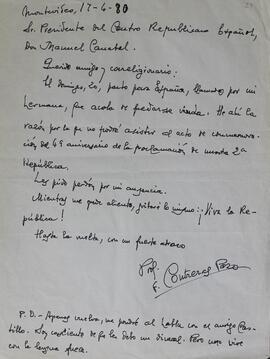 Montevideo, 17-4-80
Sr. Presidente del Centro Republicano Español,
Don Manuel
Querido amigo y correligionario:
El domingo, 20, parto para España, llamado por mi
hermana, que acaba de quedarse viuda. He ahí la
razón por la que no podré asistir al acto de conmemora-
ción del 49 aniversario de la proclamación de nuestra 2ª
República.
Les pido perdón por mi ausencia.
Mientras me quede aliento, gritaré lo mismo: ¡Viva la Re-
pública!
Hasta la vuelta, con un fuerte abrazo
Prof.
F. Contreras Pazo
P.D.- Apenas vuelva, me pondré al habla con el amigo Cas-
tillo. Soy consciente de que le debo un dineral. Pero uno vive
con la lengua fuera.